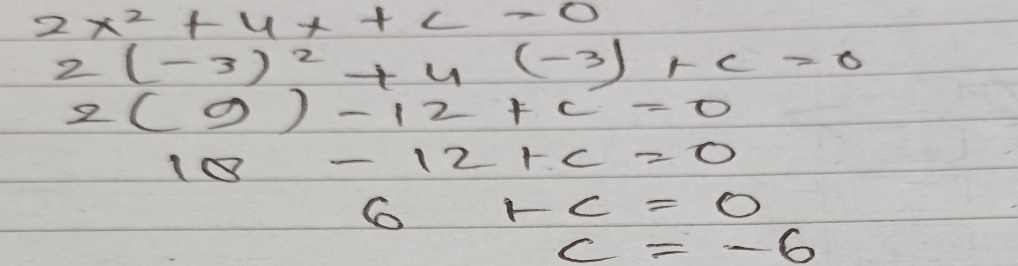 2x² + 4x + c = 0
2(-3)² + 4(-3) + c = 0
2(9) - 12 + c = 0
18 - 12 + c = 0
6 + c = 0
c = -6